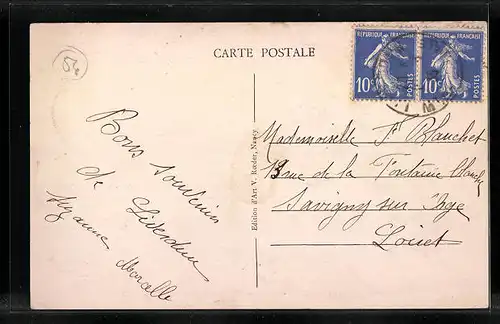 CARTE POSTALE
RÉPUBLIQUE FRANÇAISE
10c
POSTES
RÉPUBLIQUE FRANÇAISE
10c
POSTES
Bons souvenirs
de Liverdun
Suzanne
Edition d'Art V. Rœder, Nancy
Mademoiselle F Blanchet
rue de la Fontaine Blanche
Savigny sur Orge
Loiret